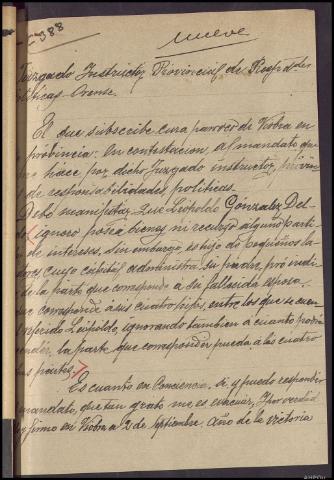 388
nueve
Juzgado Instructor Provincial de Respdades
Políticas-Orense.
El que subscribe cura parroco de Viobra en
provincia: en contestacion, al mandato que
hace por dicho Juzgado instructor, provin
de responsabilidades politicas.
Debo manifestar, que Leopoldo Gonzalez Del
ignoro posea bienes ni recursos alguno parti
de intereses, sin embargo, es hijo de pequeños la
dores cuyo capital administra su padre, pro indi
de la parte que corresponde a su fallecida esposa
que corresponde á sus cuatro hijos, entre los que se cuen
referido Leopoldo, ignorando tambien a cuanto podrá
ender, la parte que corresponder pueda á las cuatro
partes.
Es cuanto en Conciencia, si, y puedo responder
mandato, que tan grato me es evacuar, Y por verdad
firmo en Viobra a 2 de Septiembre año de la victoria
AHPOu